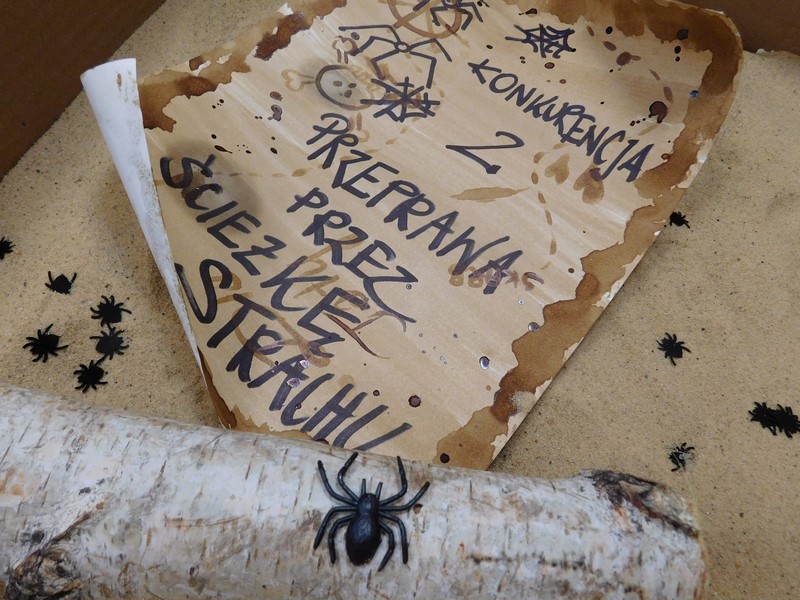 KONKURENCJA
2
PRZEPRAWA
PRZEZ
ŚCIEŻKĘ
STRACHU